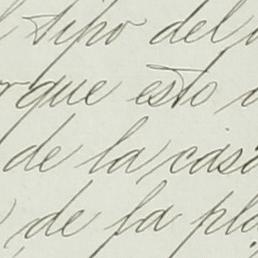 tipo del
que esto
de la casa
de la pla